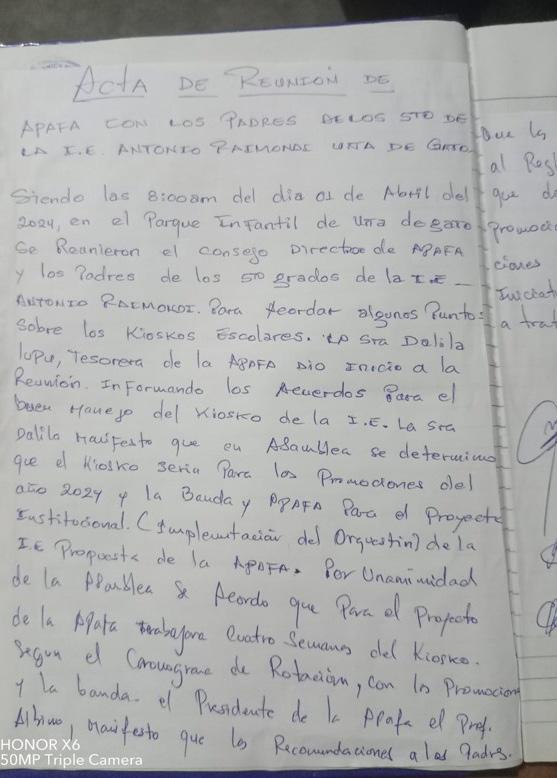 Acta DE REUNIÓN DE
APAFA CON LOS PADRES DE LOS 5TO DE
LA I.E. ANTONIO RAIMONDI UÑA DE GATO
Siendo las 8:00am del dia 01 de Abril del
2024, en el Parque Infantil de Uña de gato
Se Reunieron el consejo Directivo de APAFA
y los Padres de los 5to grados de la I.E -
ANTONIO RAIMONDI. Para Acordar algunos Puntos
Sobre los Kioskos Escolares. La Sra Dalila
lupu, Tesorera de la APAFA DIO INICIO a la
Reunión. Informando los Acuerdos Para el
buen Manejo del Kiosko de la I.E. La Sra
Dalila Manifesto que en Asamblea se determino
que el Kiosko seria Para las Promociones del
año 2024 y la Banda y APAFA Para el Proyecto
Institucional. (Implementación del Orquestin) de la
I.E Propuesta de la APAFA. Por Unanimidad
de la Asamblea Se Acordo que Para el Proyecto
de la Apafa trabajara Cuatro Semanas del Kiosko.
Segun el de Rotación, con las Promocion
y la banda. el Presidente de la Apafa el Prof.
Albino, Manifesto que las Recomendaciones a los Padres.
Que la
al Regl
que d
promoci
ciones
Iniciat
a trat
HONOR X6
50MP Triple Camera